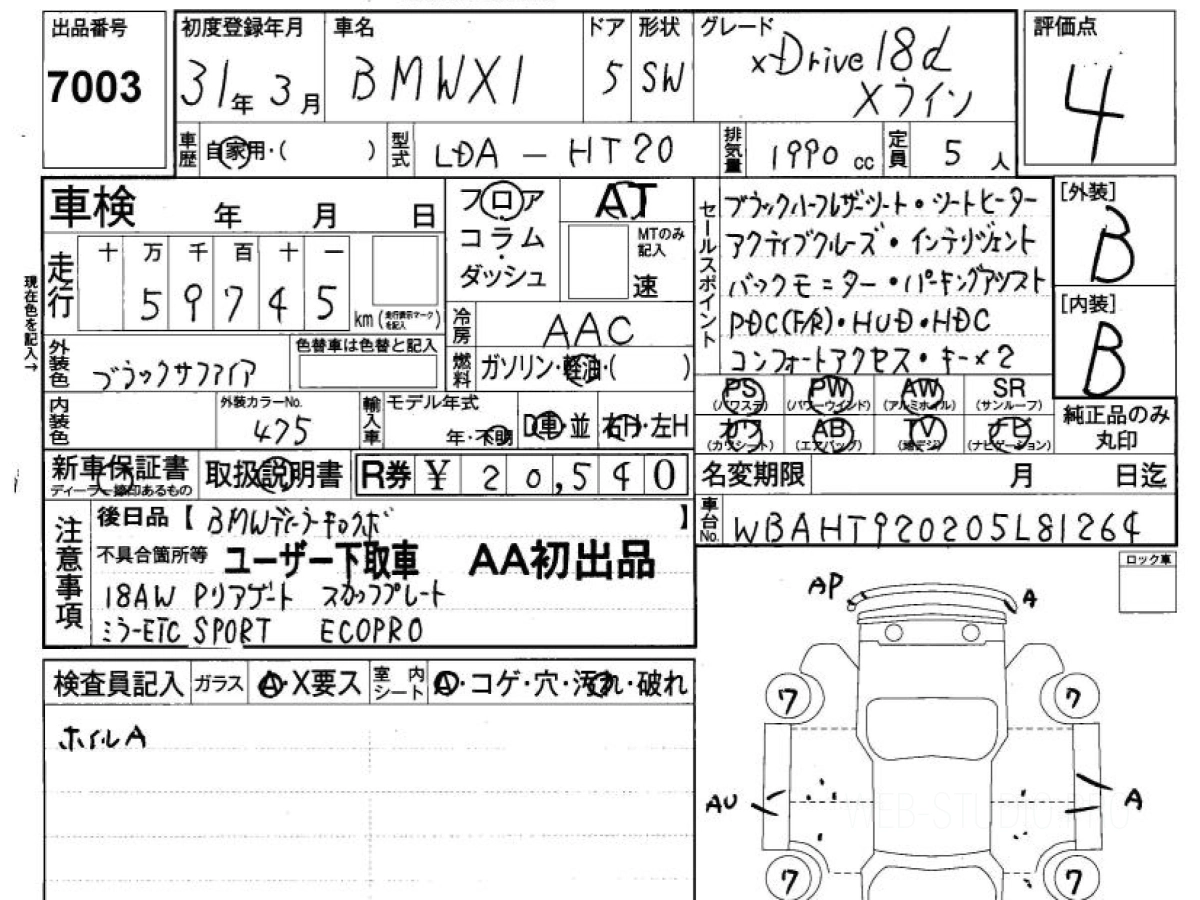 出品番号
7003
初度登録年月
31年 3月
車名
BMWX1
ドア
5
形状
SW
グレード
xDrive18d
Xライン
評価点
4
車歴
自家用・( )
型式
LDA - HT20
排気量
1990 cc
定員
5 人
車検 年 月 日
走行
十 万 千 百 十 一
5 9 7 4 5
km (走行表示マークを記入)
現在色を記入→
フロア
コラム
・
ダッシュ
AT
MTのみ記入
速
冷房
AAC
燃料
ガソリン・軽油・( )
セールスポイント
ブラックハーフレザーシート・シートヒーター
アクティブクルーズ・インテリジェント
バックモニター・パーキングアシスト
PDC(F/R)・HUD・HDC
コンフォートアクセス・キー×2
[外装]
B
[内装]
B
外装色
ブラックサファイア
色替車は色替と記入
内装色
外装カラーNo.
475
輸入車
モデル年式
年・不明
D車・並
右H・左H
PS
(パワステ)
PW
(パワーウインド)
AW
(アルミホイル)
SR
(サンルーフ)
カワ
(カワシート)
AB
(エアバッグ)
TV
(地デジ)
ナビ
(ナビゲーション)
純正品のみ
丸印
新車保証書
ディーラー捺印あるもの
取扱説明書
R券 ¥ 20,540
名変期限 月 日迄
車台No.
WBAHT920205L81264
注意事項
後日品【BMWディーラーキロクボ】
不具合箇所等 ユーザー下取車 AA初出品
18AW Pリアゲート スカッフプレート
ミラーETC SPORT ECOPRO
ロック車
検査員記入
ガラス
A・X要ス
室内シート
A・コゲ・穴・汚れ・破れ
ホイルA
AP
A
7
7
AU
A
7
7
WEB-STUDIO.PRO